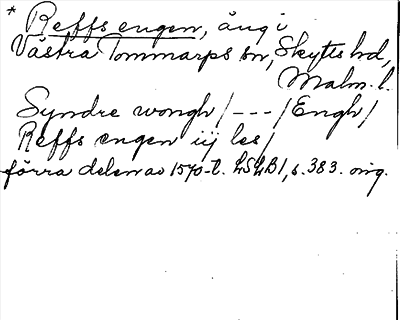 * Reffs engen, äng i
Västra Tommarps sn, Skytts hd,
Malm. l.
Syndre wongh / --- / Engh /
Reffs engen iij les /
förra delen av 1570-t. LSLB 1, s. 383. orig.